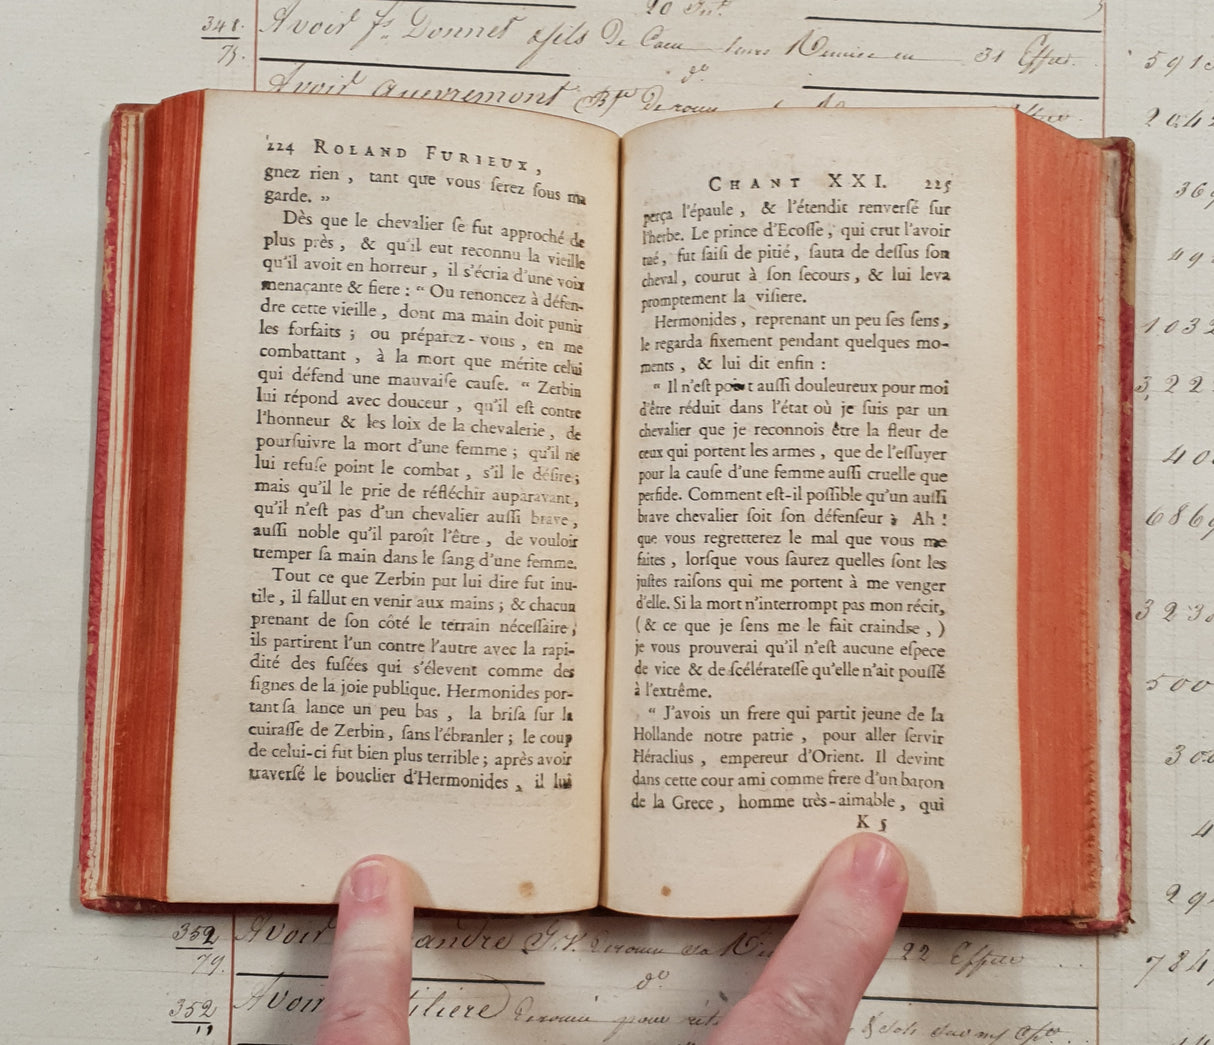 348.
Avoir Js. Donnet & fils De Caen leurs Remise en 31 Effets.
73.
do.
Avoir Quevremont
591
204
369
49
1032
3,22
40
686
323
500
30
4
29
784
224 ROLAND FURIEUX,
gnez rien , tant que vous ſerez ſous ma
garde. »
Dès que le chevalier ſe fut approché de
plus près , & qu'il eut reconnu la vieille
qu'il avoit en horreur , il s'écria d'une voix
menaçante & fiere : “ Ou renoncez à défen-
dre cette vieille , dont ma main doit punir
les forfaits ; ou préparez-vous , en me
combattant , à la mort que mérite celui
qui défend une mauvaiſe cauſe. “ Zerbin
lui répond avec douceur , qu'il eſt contre
l'honneur & les loix de la chevalerie , de
pourſuivre la mort d'une femme ; qu'il ne
lui refuſe point le combat , s'il le déſire ;
mais qu'il le prie de réfléchir auparavant ,
qu'il n'eſt pas d'un chevalier auſſi brave ,
auſſi noble qu'il paroît l'être , de vouloir
tremper ſa main dans le ſang d'une femme.
Tout ce que Zerbin put lui dire fut inu-
tile , il fallut en venir aux mains ; & chacun
prenant de ſon côté le terrain néceſſaire ,
ils partirent l'un contre l'autre avec la rapi-
dité des fuſées qui s'élevent comme des
ſignes de la joie publique. Hermonides por-
tant ſa lance un peu bas , la briſa ſur la
cuiraſſe de Zerbin, ſans l'ébranler ; le coup
de celui-ci fut bien plus terrible ; après avoir
traverſé le bouclier d'Hermonides , il lui
CHANT XXI. 225
perça l'épaule , & l'étendit renverſé ſur
l'herbe. Le prince d'Ecoſſe , qui crut l'avoir
tué , fut ſaiſi de pitié, ſauta de deſſus ſon
cheval, courut à ſon ſecours, & lui leva
promptement la viſiere.
Hermonides, reprenant un peu ſes ſens,
le regarda fixement pendant quelques mo-
ments , & lui dit enfin :
“ Il n'eſt point auſſi douleureux pour moi
d'être réduit dans l'état où je ſuis par un
chevalier que je reconnois être la fleur de
ceux qui portent les armes , que de l'eſſuyer
pour la cauſe d'une femme auſſi cruelle que
perfide. Comment eſt-il poſſible qu'un auſſi
brave chevalier ſoit ſon défenſeur ? Ah !
que vous regretterez le mal que vous me
faites , lorſque vous ſaurez quelles ſont les
juſtes raiſons qui me portent à me venger
d'elle. Si la mort n'interrompt pas mon récit,
( & ce que je ſens me le fait craindre , )
je vous prouverai qu'il n'eſt aucune eſpece
de vice & de ſcélérateſſe qu'elle n'ait pouſſé
à l'extrême.
“ J'avois un frere qui partit jeune de la
Hollande notre patrie , pour aller ſervir
Héraclius , empereur d'Orient. Il devint
dans cette cour ami comme frere d'un baron
de la Grece , homme très-aimable , qui
K 5
352
Avoir andre 22 Effets
79.
do.
352
Avoir tiliere
11